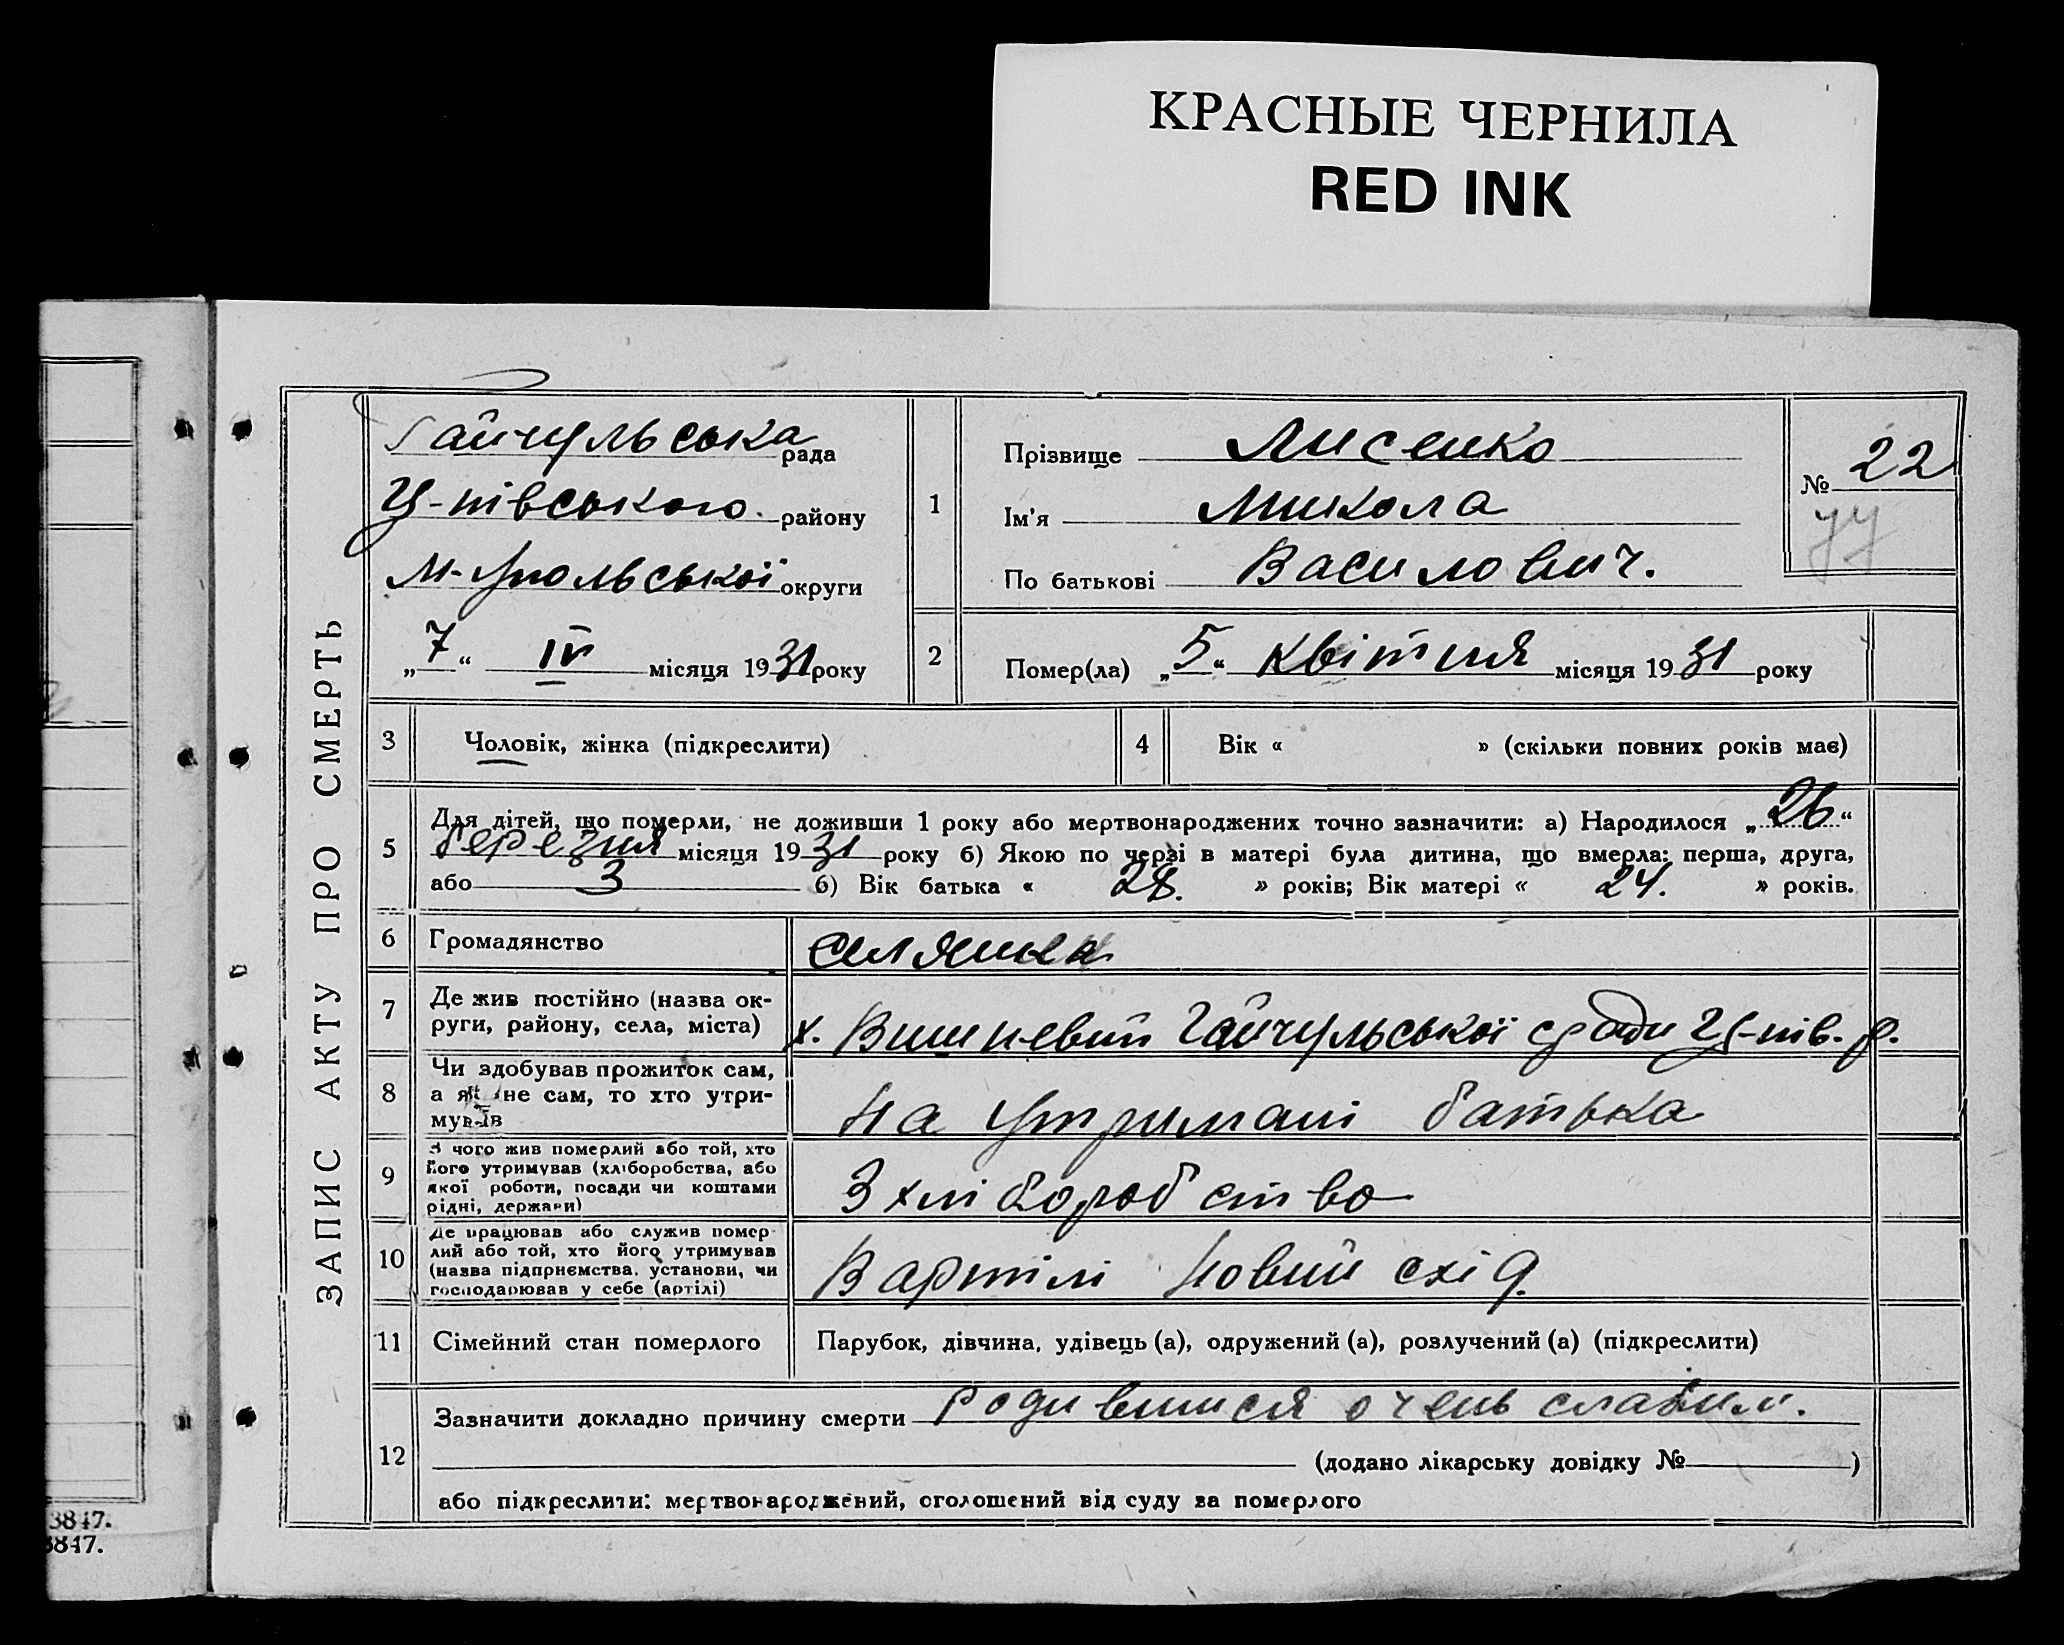 КРАСНЫЕ ЧЕРНИЛА
RED INK
ЗАПИС АКТУ ПРО СМЕРТЬ
Гайчульська рада
Ц-півського. району
М-упольської округи
„7“ IV місяця 1931 року
1
Прізвище Лисенко
Ім'я Микола
По батькові Василович.
№ 22
УУ
2
Помер(ла) „5“ квітня місяця 1931 року
3
Чоловік, жінка (підкреслити)
4
Вік « » (скільки повних років має)
5
Для дітей, що померли, не доживши 1 року або мертвонароджених точно зазначити: а) Народилося „26“
березня місяця 1931 року б) Якою по черзі в матері була дитина, що вмерла: перша, друга,
або 3 б) Вік батька « 28. » років; Вік матері « 24. » років.
6
Громадянство
селянин
7
Де жив постійно (назва ок-
руги, району, села, міста)
х. Вишневий Гайчульської с/ради Ц-пів. р.
8
Чи здобував прожиток сам,
а як не сам, то хто утри-
мував
на утримані батька
9
З чого жив померлий або той, хто
його утримував (хліборобства, або
якої роботи, посади чи коштами
рідні, держави)
З хліборобство
10
Де працював або служив помер-
лий або той, хто його утримував
(назва підприємства, установи, чи
господарював у себе (артілі)
В артілі Новий схід.
11
Сімейний стан померлого
Парубок, дівчина, удівець (а), одружений (а), розлучений (а) (підкреслити)
12
Зазначити докладно причину смерти родившися очень слабим.
(додано лікарську довідку № )
або підкреслити: мертвонароджений, оголошений від суду за померлого
3847.
3847.